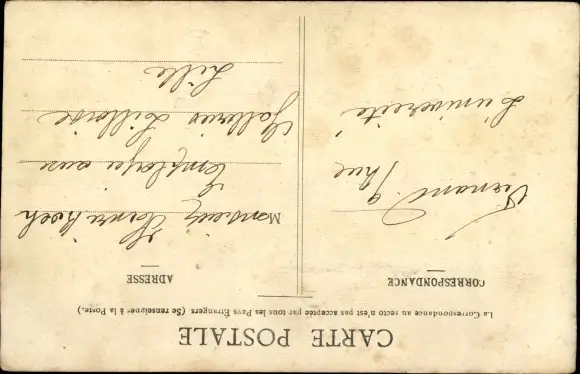 CARTE POSTALE
La Correspondance au recto n'est pas acceptée par tous les Pays Etrangers (Se renseigner à la Poste.)
CORRESPONDANCE
Fernand
L'université
ADRESSE
Monsieur Henri Koch
Employé aux
Galleries Lilloise
Lille